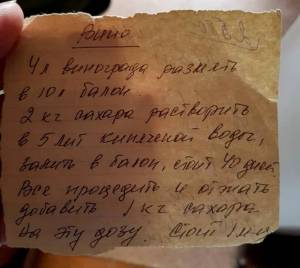 Вино
4 л винограда размять
в 10 л балон
2 кг сахара растворить
в 5 лит кипяченой воды,
залить в балон, стоит 40 дней
Все процедить и отжать
добавить 1 кг сахара
на эту дозу. Стоит 1 м